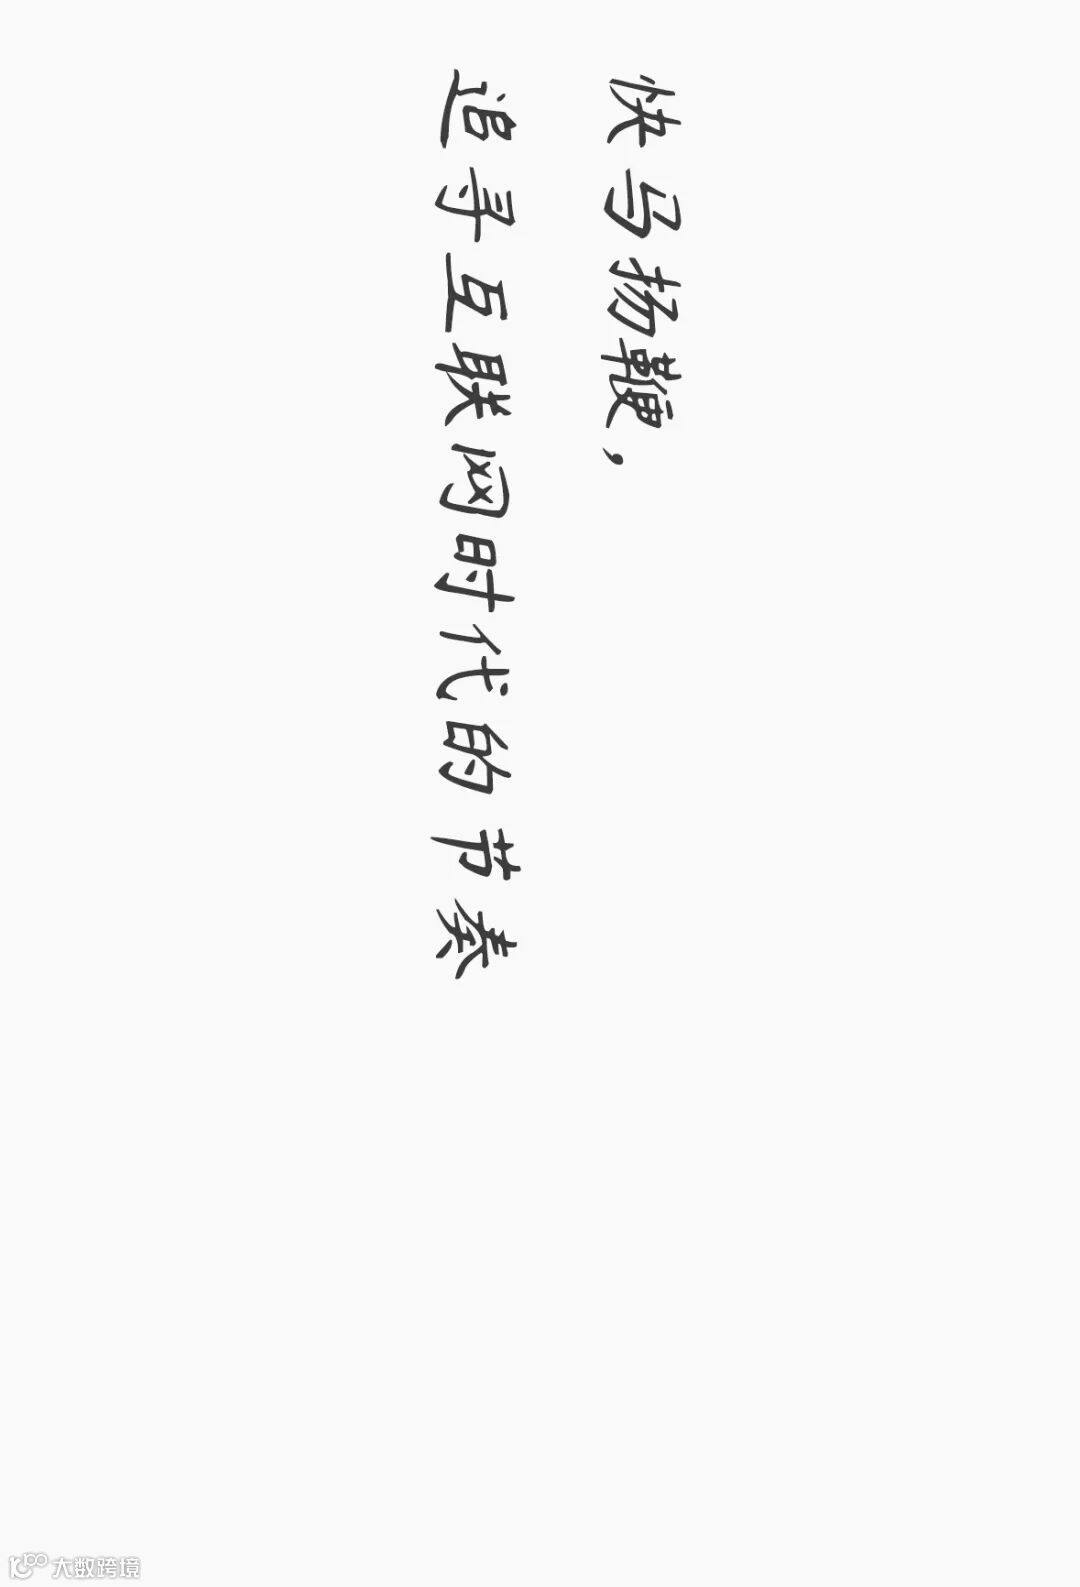 快马扬鞭，
追寻互联网时代的节奏
大数跨境